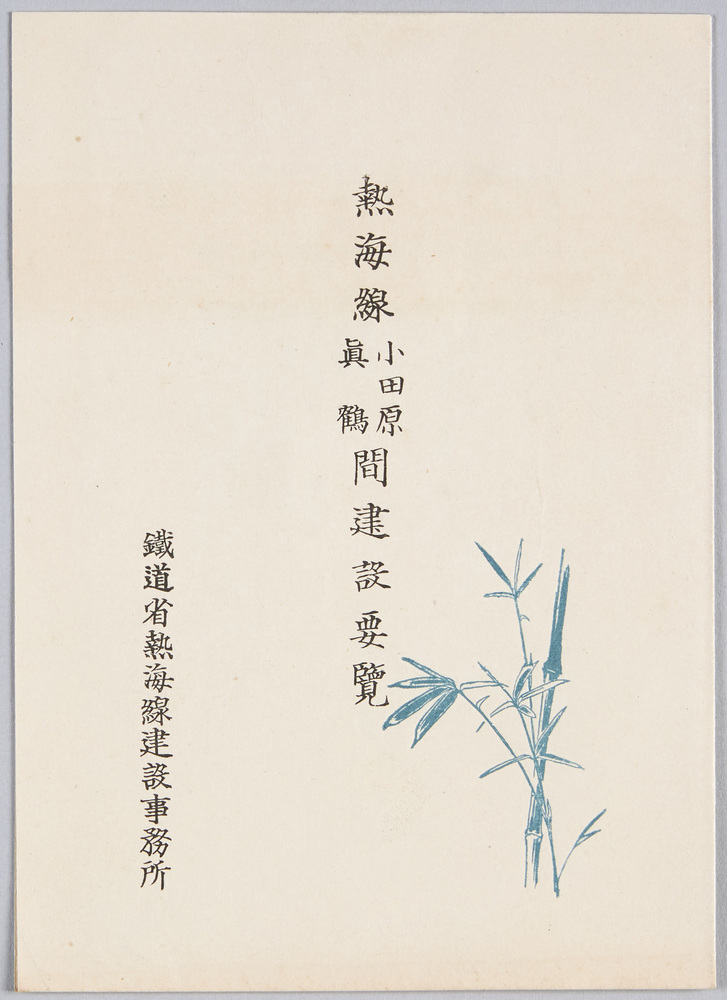 熱海線小田原眞鶴間建設要覽
鐵道省熱海線建設事務所